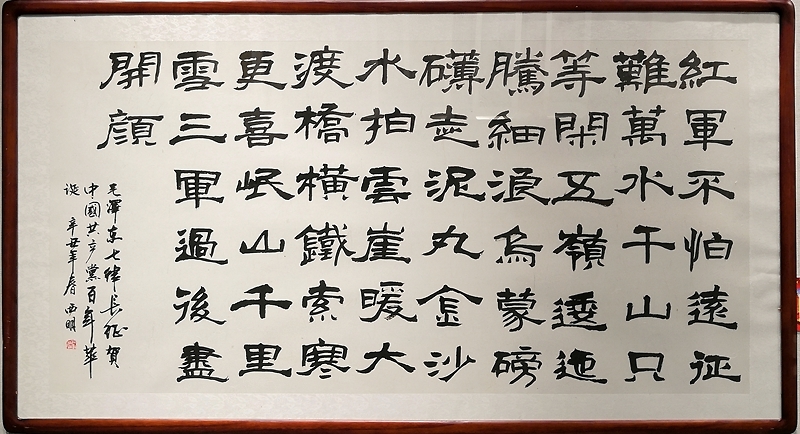 紅軍不怕遠征
難萬水千山只
等閑五嶺逶迤
騰細浪烏蒙磅
礴走泥丸金沙
水拍雲崖暖大
渡橋橫鐵索寒
更喜岷山千里
雪三軍過後盡
開顏
毛澤東七律長征賀
中國共产黨百年華
诞 辛丑年春 西明